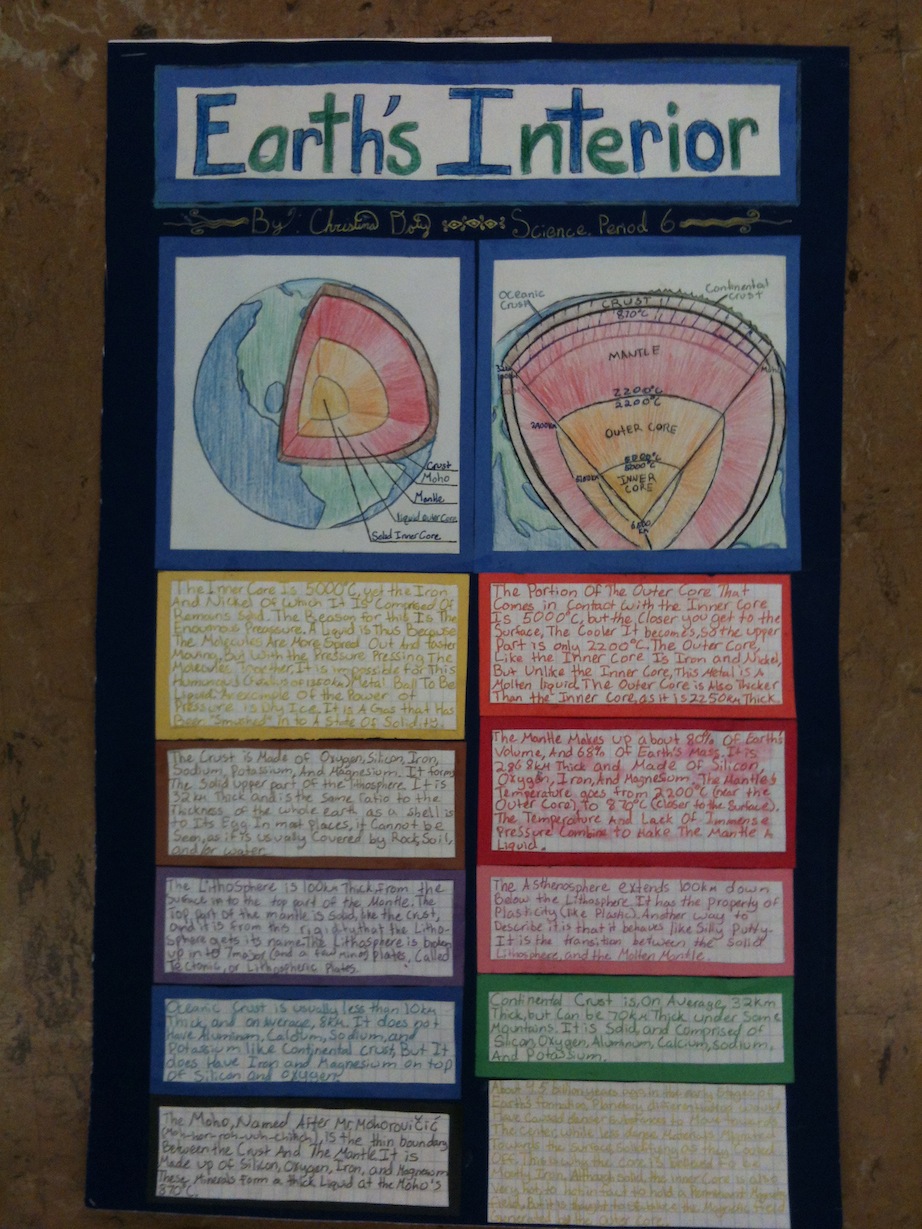 Earth's Interior
By: Christina Doty Science, Period 6
Oceanic
Crust
Continental
Crust
CRUST
870°C
MANTLE
Moho
2200°C
2200°C
OUTER CORE
5000°C
5000°C
INNER
CORE
Crust
Moho
Mantle
Liquid Outer Core
Solid Inner Core
The Inner Core Is 5000°C, yet the Iron
And Nickel Of Which It Is Comprised Of
Remains Solid. The Reason for this Is The
Enourmous Preasure. A Liquid is Thus Because
The Molecules Are More Spread Out And faster
Moving, But With the Pressure Pressing The
Molecules Together It is impossible for This
Metal Ball To Be
Liquid. An example Of the Power of
Pressure is Dry Ice. It is A Gas that Has
Been "Smushed" In to A State Of Solidity.
The Portion Of The Outer Core That
Comes in Contact With the Inner Core
Is 5000°C, but the Closer you get to the
Surface, The Cooler It becomes, So the upper
Part is only 2200°C. The Outer Core,
Like the Inner Core Is Iron and Nickel,
But Unlike the Inner Core, This Metal is A
Molten liquid. The Outer Core is Also Thicker
Than the Inner Core, as it is 2250km Thick.
The Crust is Made of Oxygen, Silicon, Iron,
Sodium, Potassium, And Magnesium. It forms
The Solid upper part of the lithosphere. It is
32 km Thick and is the Same ratio to the
Thickness of the whole earth as a shell is
to Its Egg. In most Places, it Cannot be
Seen, as it is usually Covered by Rock, Soil,
and/or water.
The Mantle Makes up about 80% Of Earth's
Volume, And 68% Of Earth's Mass. It is
2868km Thick and Made Of Silicon,
Oxygen, Iron, And Magnesium. The Mantle's
Temperature goes from 2200°C (near the
Outer Core), to 870°C (Closer to the Surface).
The Temperature And Lack Of Immense
Pressure Combine to Make The Mantle A
Liquid.
The Lithosphere is 100km Thick, from the
Surface in to the top part of the Mantle. The
Top part of the mantle is Solid, like the Crust,
and it is from this rigidity that the Litho-
Sphere gets its name. The Lithosphere is broken
up in to 7 major (and a few minor) Plates, Called
Tectonic, or Lithospheric Plates.
The Asthenosphere extends 100km down
Below the Lithosphere. It has the Property of
Plasticity (like Plastic). Another way to
Describe it is that it behaves like Silly Putty.
It is the transition between the Solid
Lithosphere, and the Molten Mantle.
Oceanic Crust is usually less than 10km
Thick, and on average, 8km. It does not
Have Aluminum, Calcium, Sodium, and
Potassium like Continental Crust, But It
does Have Iron and Magnesium on top
Of Silicon and oxygen.
Continental Crust is, On Average, 32km
Thick, but Can be 70km Thick under Some
Mountains. It is Solid, and Comprised of
Silicon, Oxygen, Aluminum, Calcium, Sodium,
And Potassium.
The Moho, Named After Mr. Mohorovičić
is the thin boundary
Between the Crust And The Mantle. It is
Made up of Silicon, Oxygen, Iron, and Magnesium.
These Minerals form a thick Liquid at the Moho's
870°C.
About 4.5 billion years ago in the early Stages of
Earth's formation, Planetary differentiation would
Have Caused denser Substances to Move towards
The Center, while less dense Materials Migrated
Towards the Surface,
Off. This is why the Core is believed to be
Mostly Iron. Although Solid, the inner Core is also
Very hot, to hot in fact to hold a Permanent Magnetic
Field, But it is thought to Stabilize the Magnetic Field
Generated by the Outer Core.